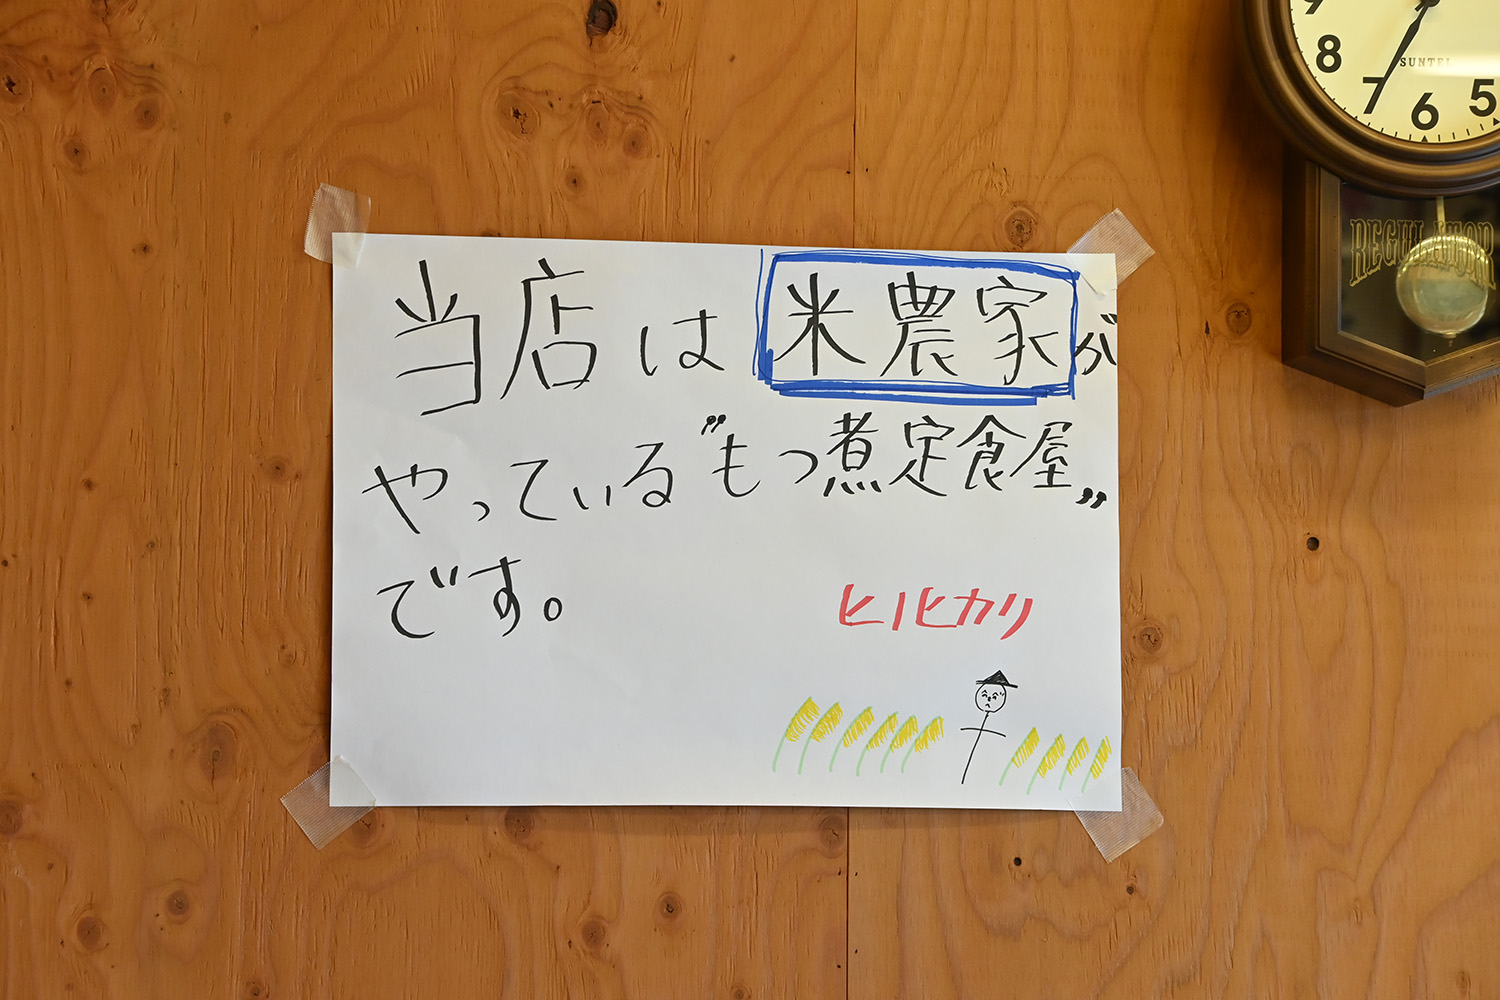 当店は米農家が
やっている〝もつ煮定食屋〟
です。
ヒノヒカリ
8
7
6
5
SUNTEL
REGULATOR